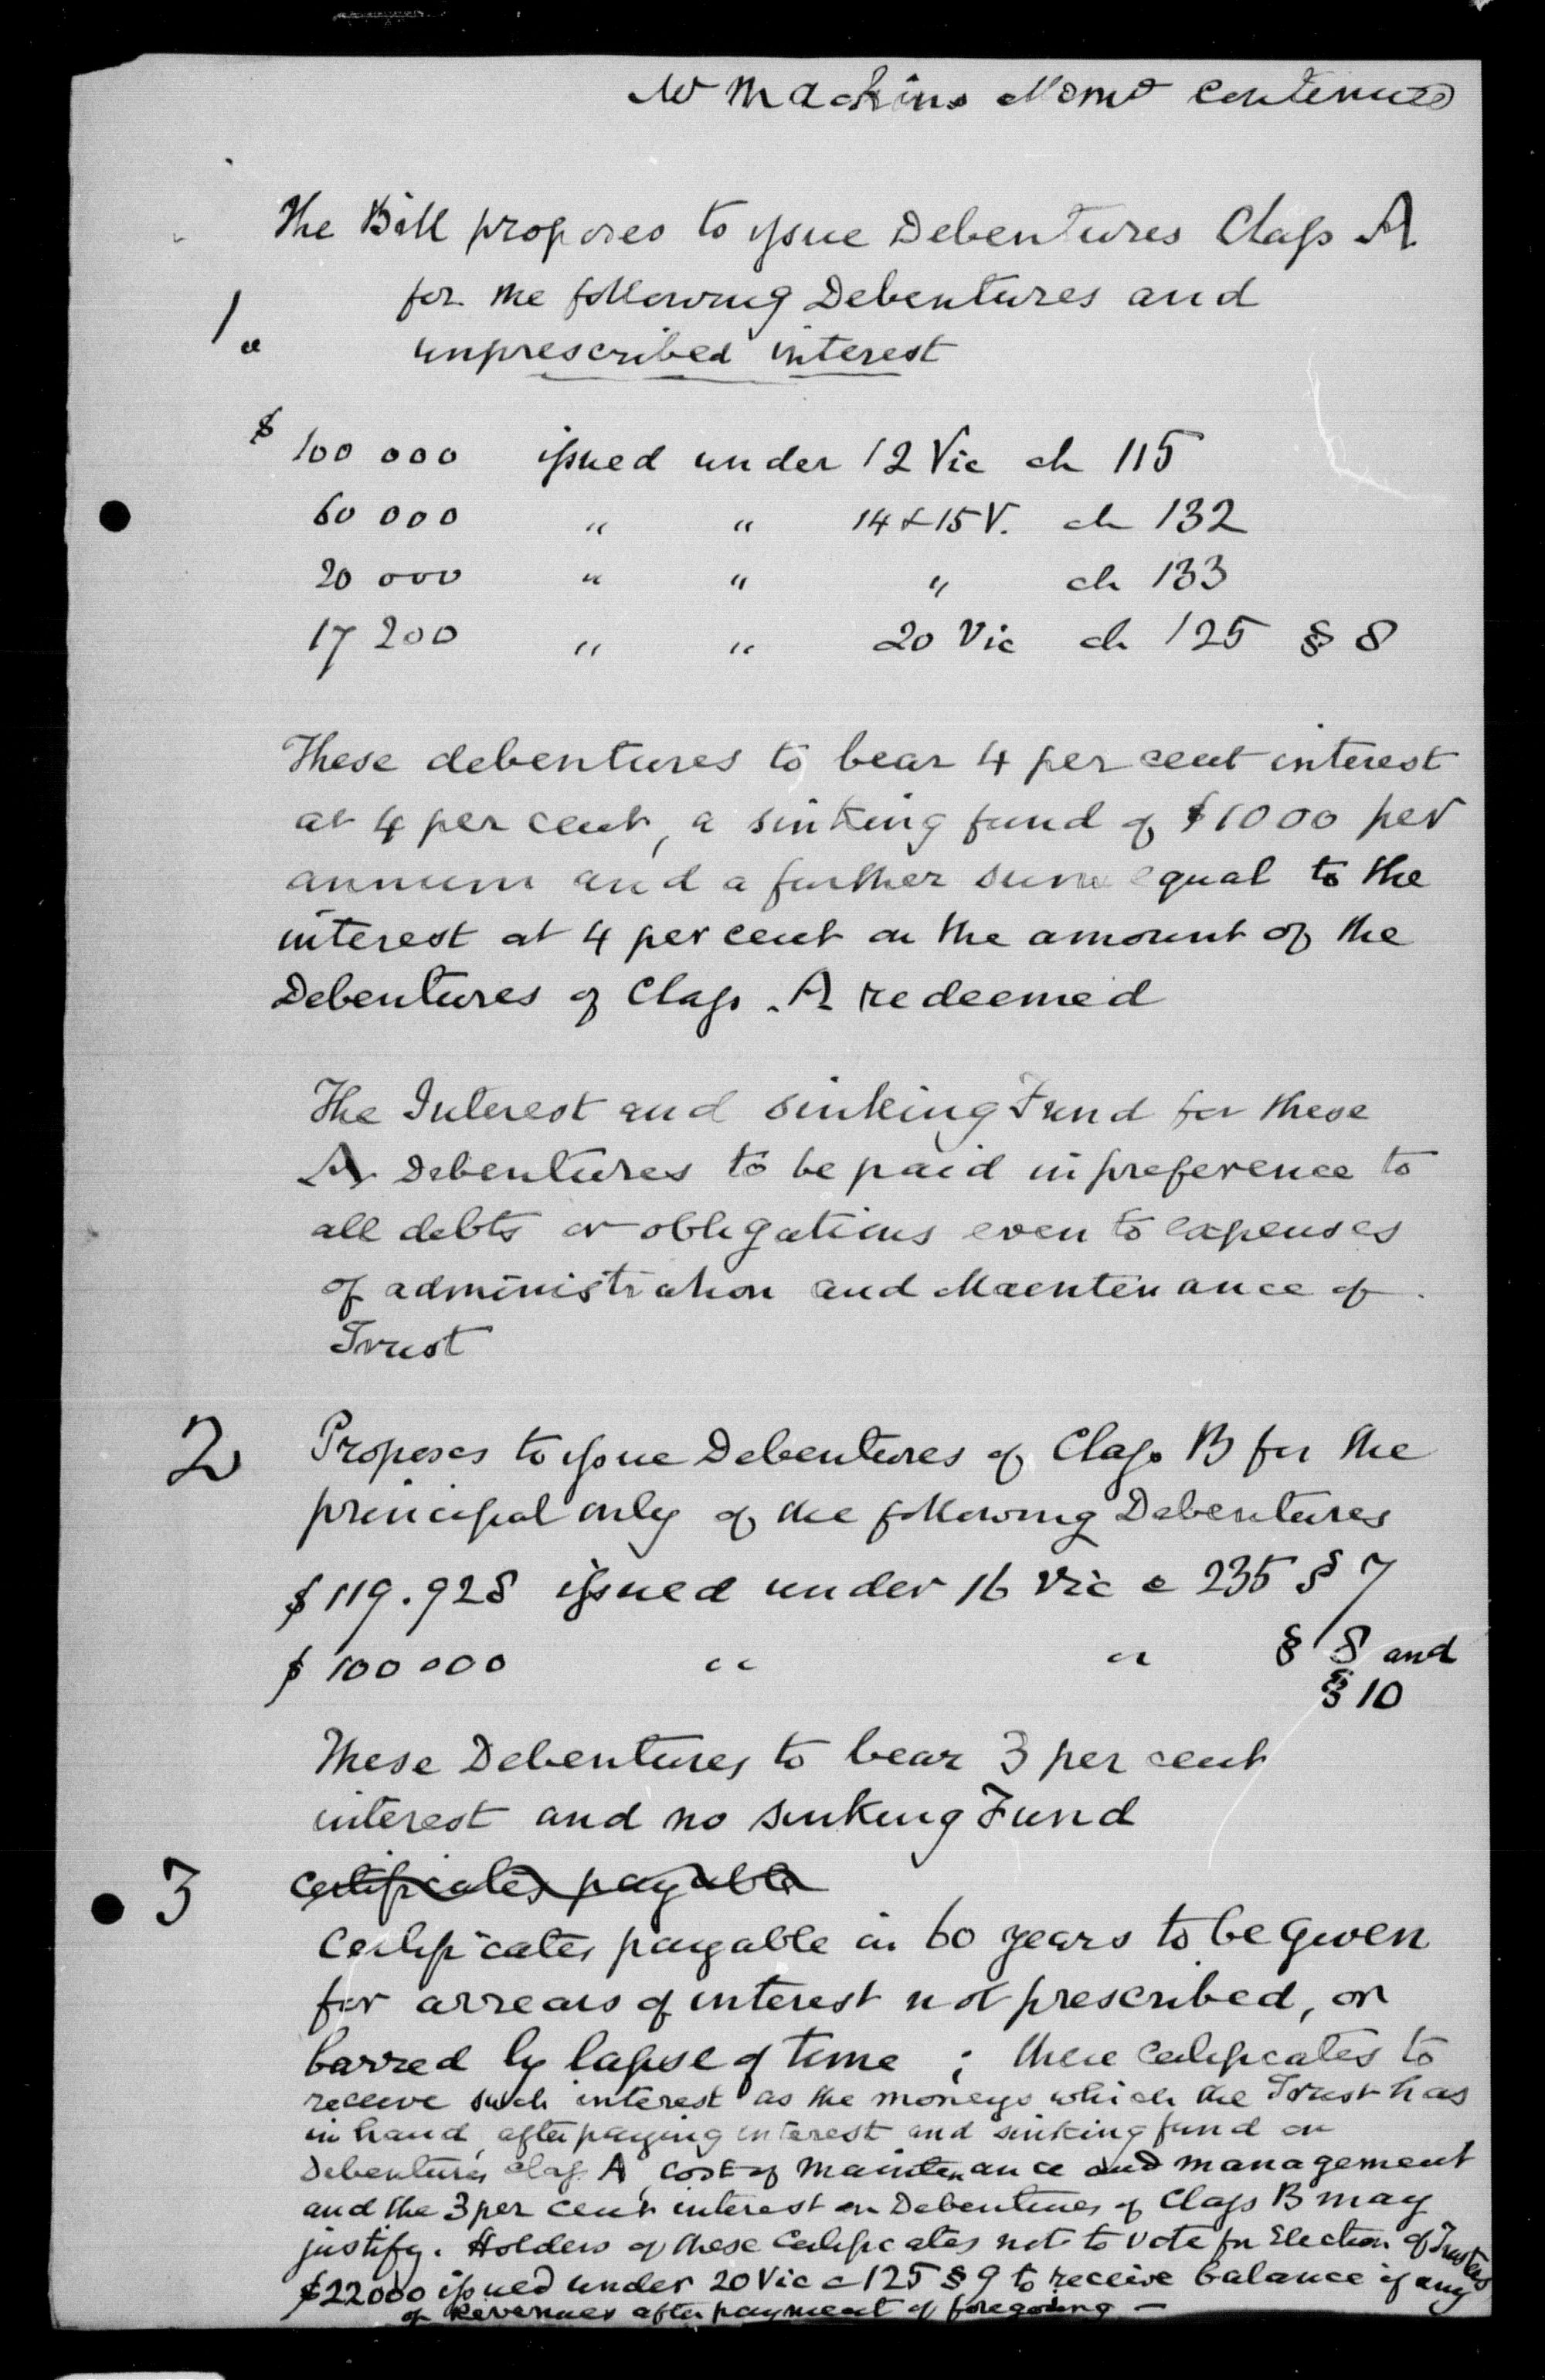 W Mackins Memo continued
The Bill proposes to issue Debentures Class A
for the following Debentures and
1. unprescribed interest
$ 100 000 issued under 12 Vic ch 115
60 000 " " 14 & 15 V. ch 132
20 000 " " " ch 133
17 200 " " 20 Vic ch 125 § 8
These debentures to bear 4 per cent interest
at 4 per cent, a sinking fund of $1000 per
annum and a further sum equal to the
interest at 4 per cent on the amount of the
Debentures of Class A redeemed
The Interest and sinking Fund for these
A Debentures to be paid in preference to
all debts or obligations even to expenses
of administration and Maintenance of
Trust
2 Proposes to issue Debentures of Class B for the
principal only of the following Debentures
$119.928 issued under 16 Vic c 235 § 7
$ 100 000 " " § 8 and
§ 10
These Debentures to bear 3 per cent
interest and no sinking Fund
3 certificates payable
Certificates payable in 60 years to be given
for arrears of interest not prescribed, or
barred by lapse of time ; these certificates to
receive such interest as the moneys which the Trust has
in hand, after paying interest and sinking fund on
Debentures class A, cost of maintenance and management
and the 3 per cent interest on Debentures of Class B may
justify. Holders of these Certificates not to vote for Election of Trustees
$22000 issued under 20 Vic c 125 § 9 to receive balance if any
of Revenues after payment of foregoing —